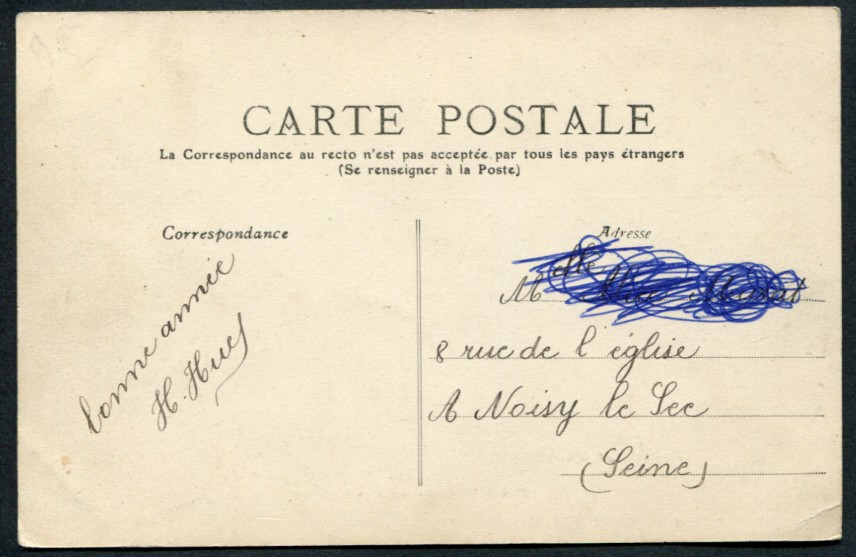 CARTE POSTALE
La Correspondance au recto n'est pas acceptée par tous les pays étrangers
(Se renseigner à la Poste)
Correspondance
bonne année
H. Hue
Adresse
Melle
8 rue de l'église
A Noisy le Sec
(Seine)